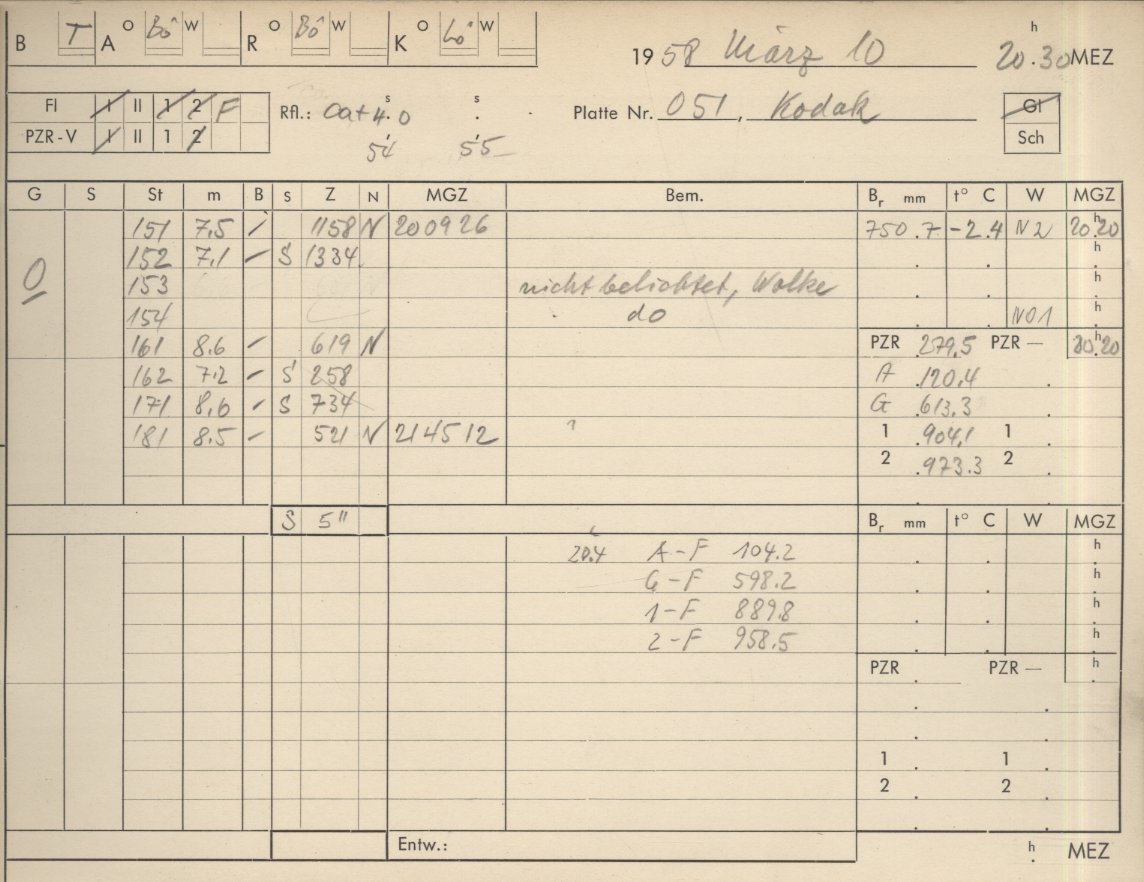 B T A O Bô W R O Bô W K O Lô W
19 58 März 10 20.30 h MEZ
FI I II 1 2 F Rfl.: 0a+4.0 s . s Platte Nr. 051, Kodak Gl
PZR-V I II 1 2 54 55 Sch
G S St m B S Z N MGZ Bem. Br mm t° C W MGZ
151 7.5 / 1158 N 20 09 26 750.7 -2.4 N2 20.20 h
152 7.1 – S 1334 . . h
0 153 nicht belichtet, Wolke . . h
154 do . . NO1 h
161 8.6 – 619 N PZR 279.5 PZR — 20.20 h
162 7.2 – S 258 A .120.4 .
171 8.6 – S 734 G .613.3 .
181 8.5 – 521 N 21 45 12 1 .904.1 1 .
2 .973.3 2 .
S 5" Br mm t° C W MGZ
20.4 A-F 104.2 . . h
G-F 598.2 . . h
1-F 889.8 . . h
2-F 958.5 . . h
PZR . PZR — . h
1 . 1 .
2 . 2 .
Entw.: h . MEZ